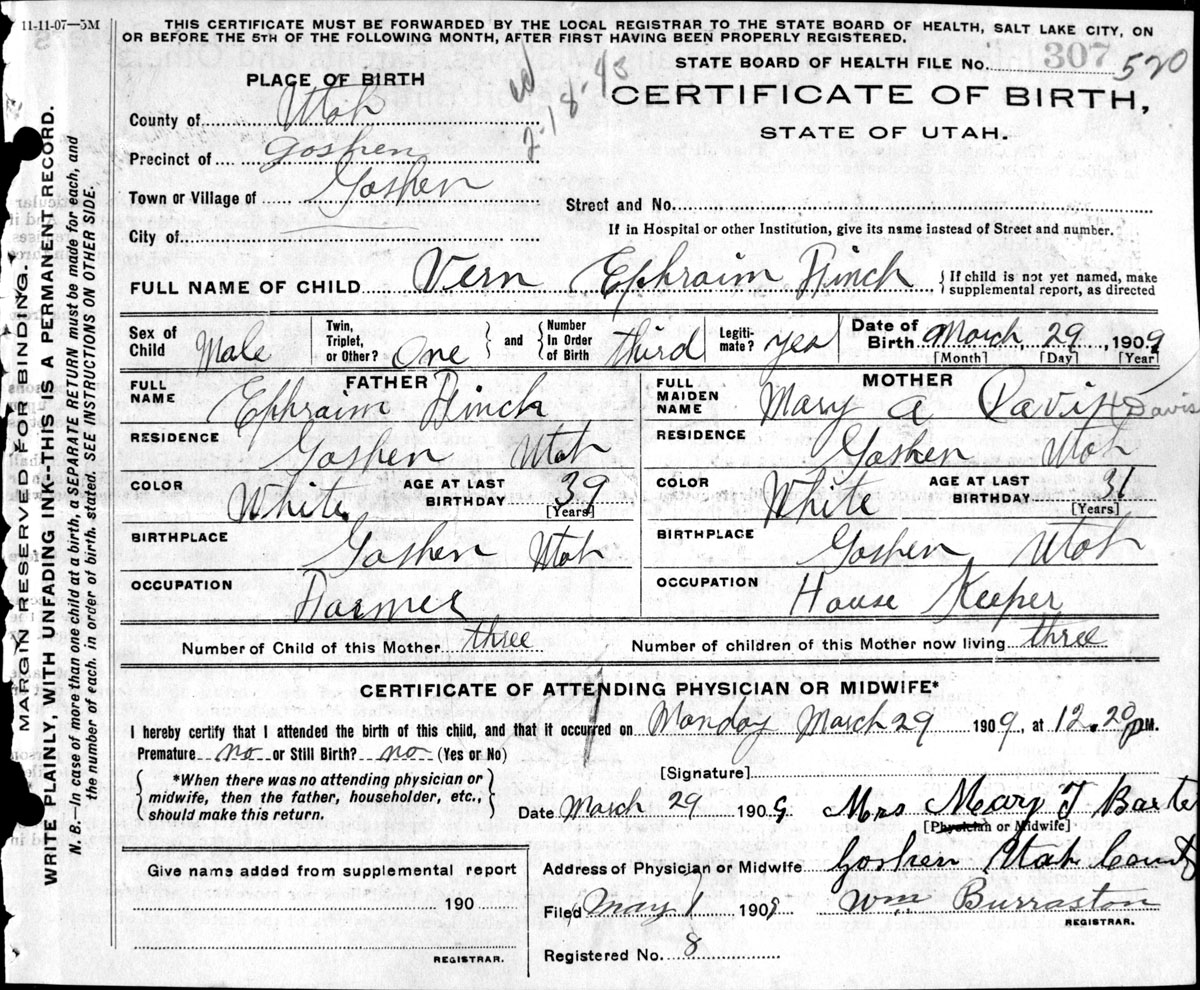 11-11-07—5M
THIS CERTIFICATE MUST BE FORWARDED BY THE LOCAL REGISTRAR TO THE STATE BOARD OF HEALTH, SALT LAKE CITY, ON
OR BEFORE THE 5TH OF THE FOLLOWING MONTH, AFTER FIRST HAVING BEEN PROPERLY REGISTERED.
STATE BOARD OF HEALTH FILE No. 307 520
PLACE OF BIRTH
CERTIFICATE OF BIRTH,
STATE OF UTAH.
County of Utah
Precinct of Goshen
Town or Village of Goshen
Street and No.
City of
If in Hospital or other Institution, give its name instead of Street and number.
FULL NAME OF CHILD Vern Ephraim Finch
If child is not yet named, make
supplemental report, as directed
Sex of Child Male
Twin, Triplet, or Other? One
and
Number In Order of Birth third
Legiti-mate? yes
Date of Birth March 29, 1909
[Month] [Day] [Year]
FATHER
FULL NAME Ephraim Finch
RESIDENCE Goshen Utah
COLOR White
AGE AT LAST BIRTHDAY 39
[Years]
BIRTHPLACE Goshen Utah
OCCUPATION Farmer
MOTHER
FULL MAIDEN NAME Mary A Davis Davis
RESIDENCE Goshen Utah
COLOR White
AGE AT LAST BIRTHDAY 31
[Years]
BIRTHPLACE Goshen Utah
OCCUPATION House Keeper
Number of Child of this Mother three
Number of children of this Mother now living three
CERTIFICATE OF ATTENDING PHYSICIAN OR MIDWIFE*
I hereby certify that I attended the birth of this child, and that it occurred on Monday March 29 1909, at 12.20 P.M.
Premature no or Still Birth? no (Yes or No)
[Signature]
*When there was no attending physician or
midwife, then the father, householder, etc.,
should make this return.
Date March 29 1909 Mrs Mary T
[Physician or Midwife]
Give name added from supplemental report
190
REGISTRAR.
Address of Physician or Midwife Goshen Utah County
Filed May 1 1909 Wm Burraston
REGISTRAR.
Registered No. 8
MARGIN RESERVED FOR BINDING.
WRITE PLAINLY, WITH UNFADING INK--THIS IS A PERMANENT RECORD.
N. B.—In case of more than one child at a birth, a SEPARATE RETURN must be made for each, and
the number of each, in order of birth, stated. SEE INSTRUCTIONS ON OTHER SIDE.